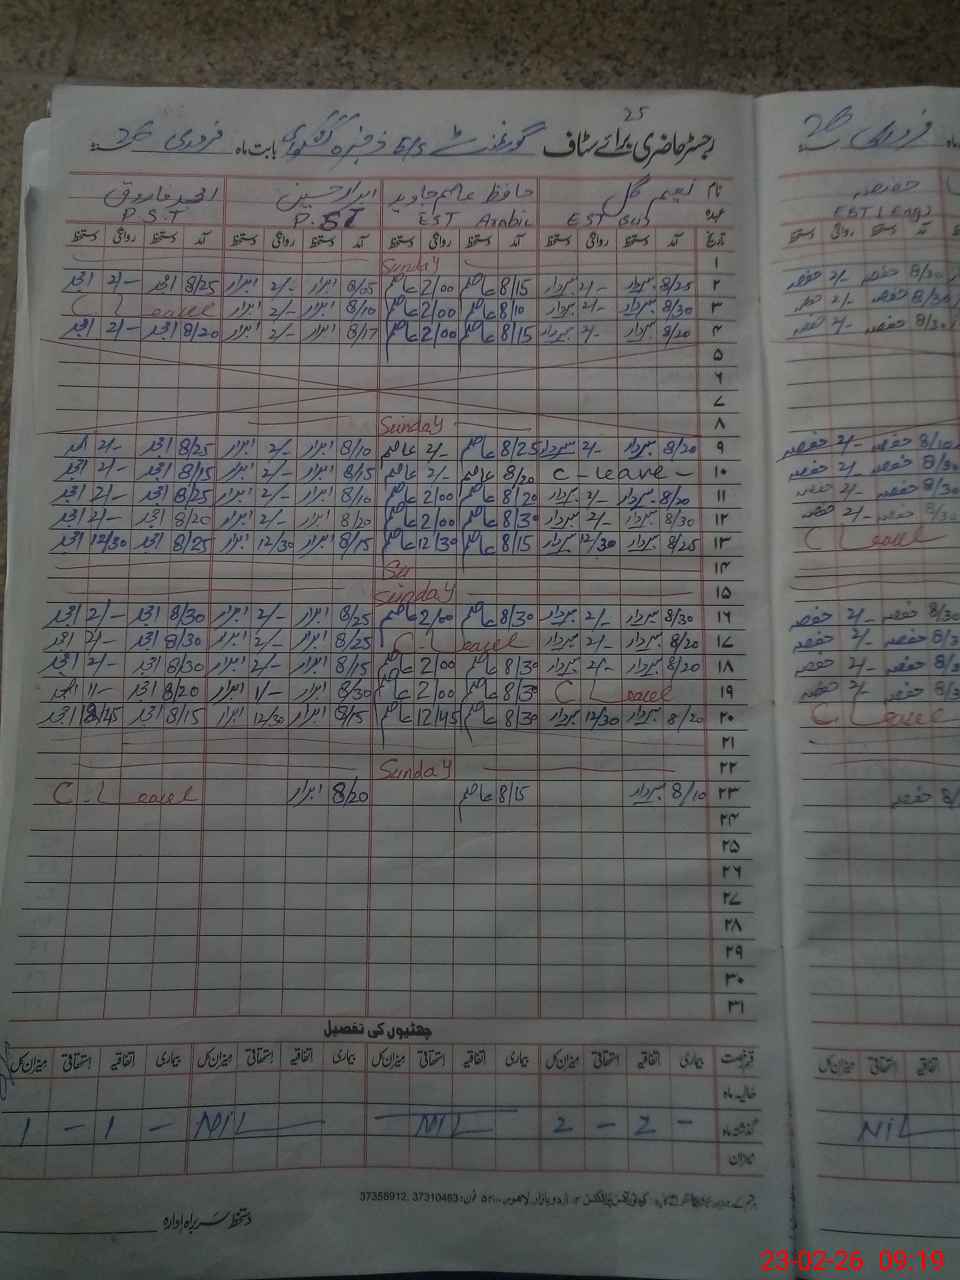 25
رجسٹر حاضری برائے سٹاف گورنمنٹ E/S بابت ماہ فروری 26 سنہ
نام نعیم گل حافظ عاصم جاوید ابرار حسین امجد فاروق
عہدہ EST EST Arabic P.ST P.S.T
تاریخ آمد دستخط روانگی دستخط آمد دستخط روانگی دستخط آمد دستخط روانگی دستخط آمد دستخط روانگی دستخط
۱ Sunday
۲ 8/25 2/- 8/15 عاصم 2/00 عاصم 8/05 ابرار 2/- ابرار 8/25 امجد 2/- امجد
۳ 8/30 2/- 8/10 عاصم 2/00 عاصم 8/10 ابرار 2/- ابرار C Leavel
۴ 8/20 2/- 8/15 عاصم 2/00 عاصم 8/17 ابرار 2/- ابرار 8/20 امجد 2/- امجد
۵
۶
۷
۸ Sunday
۹ 8/20 2/- 8/25 عاصم 2/- عاصم 8/10 ابرار 2/- ابرار 8/25 امجد 2/- امجد
۱۰ C-Leave- 8/20 عاصم 2/- عاصم 8/15 ابرار 2/- ابرار 8/15 امجد 2/- امجد
۱۱ 8/20 2/- 8/20 عاصم 2/00 عاصم 8/10 ابرار 2/- ابرار 8/25 امجد 2/- امجد
۱۲ 8/30 2/- 8/30 عاصم 2/00 عاصم 8/20 ابرار 2/- ابرار 8/20 امجد 2/- امجد
۱۳ 8/25 12/30 8/15 عاصم 12/30 عاصم 8/15 ابرار 12/30 ابرار 8/25 امجد 12/30 امجد
۱۴ Su
۱۵ Sunday
۱۶ 8/30 2/- 8/30 عاصم 2/00 عاصم 8/25 ابرار 2/- ابرار 8/30 امجد 2/- امجد
۱۷ 8/20 2/- C-Leavel 8/25 ابرار 2/- ابرار 8/30 امجد 2/- امجد
۱۸ 8/20 2/- 8/30 عاصم 2/00 عاصم 8/15 ابرار 2/- ابرار 8/30 امجد 2/- امجد
۱۹ C Leavel 8/30 عاصم 2/00 عاصم 8/30 ابرار 1/- ابرار 8/20 امجد 1/- امجد
۲۰ 8/20 12/30 8/30 عاصم 12/45 عاصم 8/15 ابرار 12/30 ابرار 8/15 امجد 12/45 امجد
۲۱
۲۲ Sunday
۲۳ 8/10 8/15 عاصم 8/20 ابرار C-Leavel
۲۴
۲۵
۲۶
۲۷
۲۸
۲۹
۳۰
۳۱
چھٹیوں کی تفصیل
قسم رخصت بیماری اتفاقیہ استحقاقی میزان کل بیماری اتفاقیہ استحقاقی میزان کل بیماری اتفاقیہ استحقاقی میزان کل بیماری اتفاقیہ استحقاقی میزان کل
حالیہ ماہ
گذشتہ ماہ - 2 - 2 NIL NIL - 1 - 1
میزان
37356912, 37310463 فون:
دستخط سربراہ ادارہ
فروری 26 سنہ
حفصہ
EST (Eng)
آمد دستخط روانگی دستخط
8/30 حفصہ 2/- حفصہ
8/30 حفصہ 2/-
8/30 حفصہ 2/- حفصہ
8/10 حفصہ 2/- حفصہ
حفصہ 2/- حفصہ
8/30 حفصہ 2/- حفصہ
8/30 حفصہ 2/- حفصہ
C Leavel
8/30 حفصہ 2/- حفصہ
حفصہ 2/- حفصہ
حفصہ 2/- حفصہ
حفصہ 2/- حفصہ
C Leavel
حفصہ
اتفاقیہ استحقاقی میزان کل
NIL
23-02-26 09:19